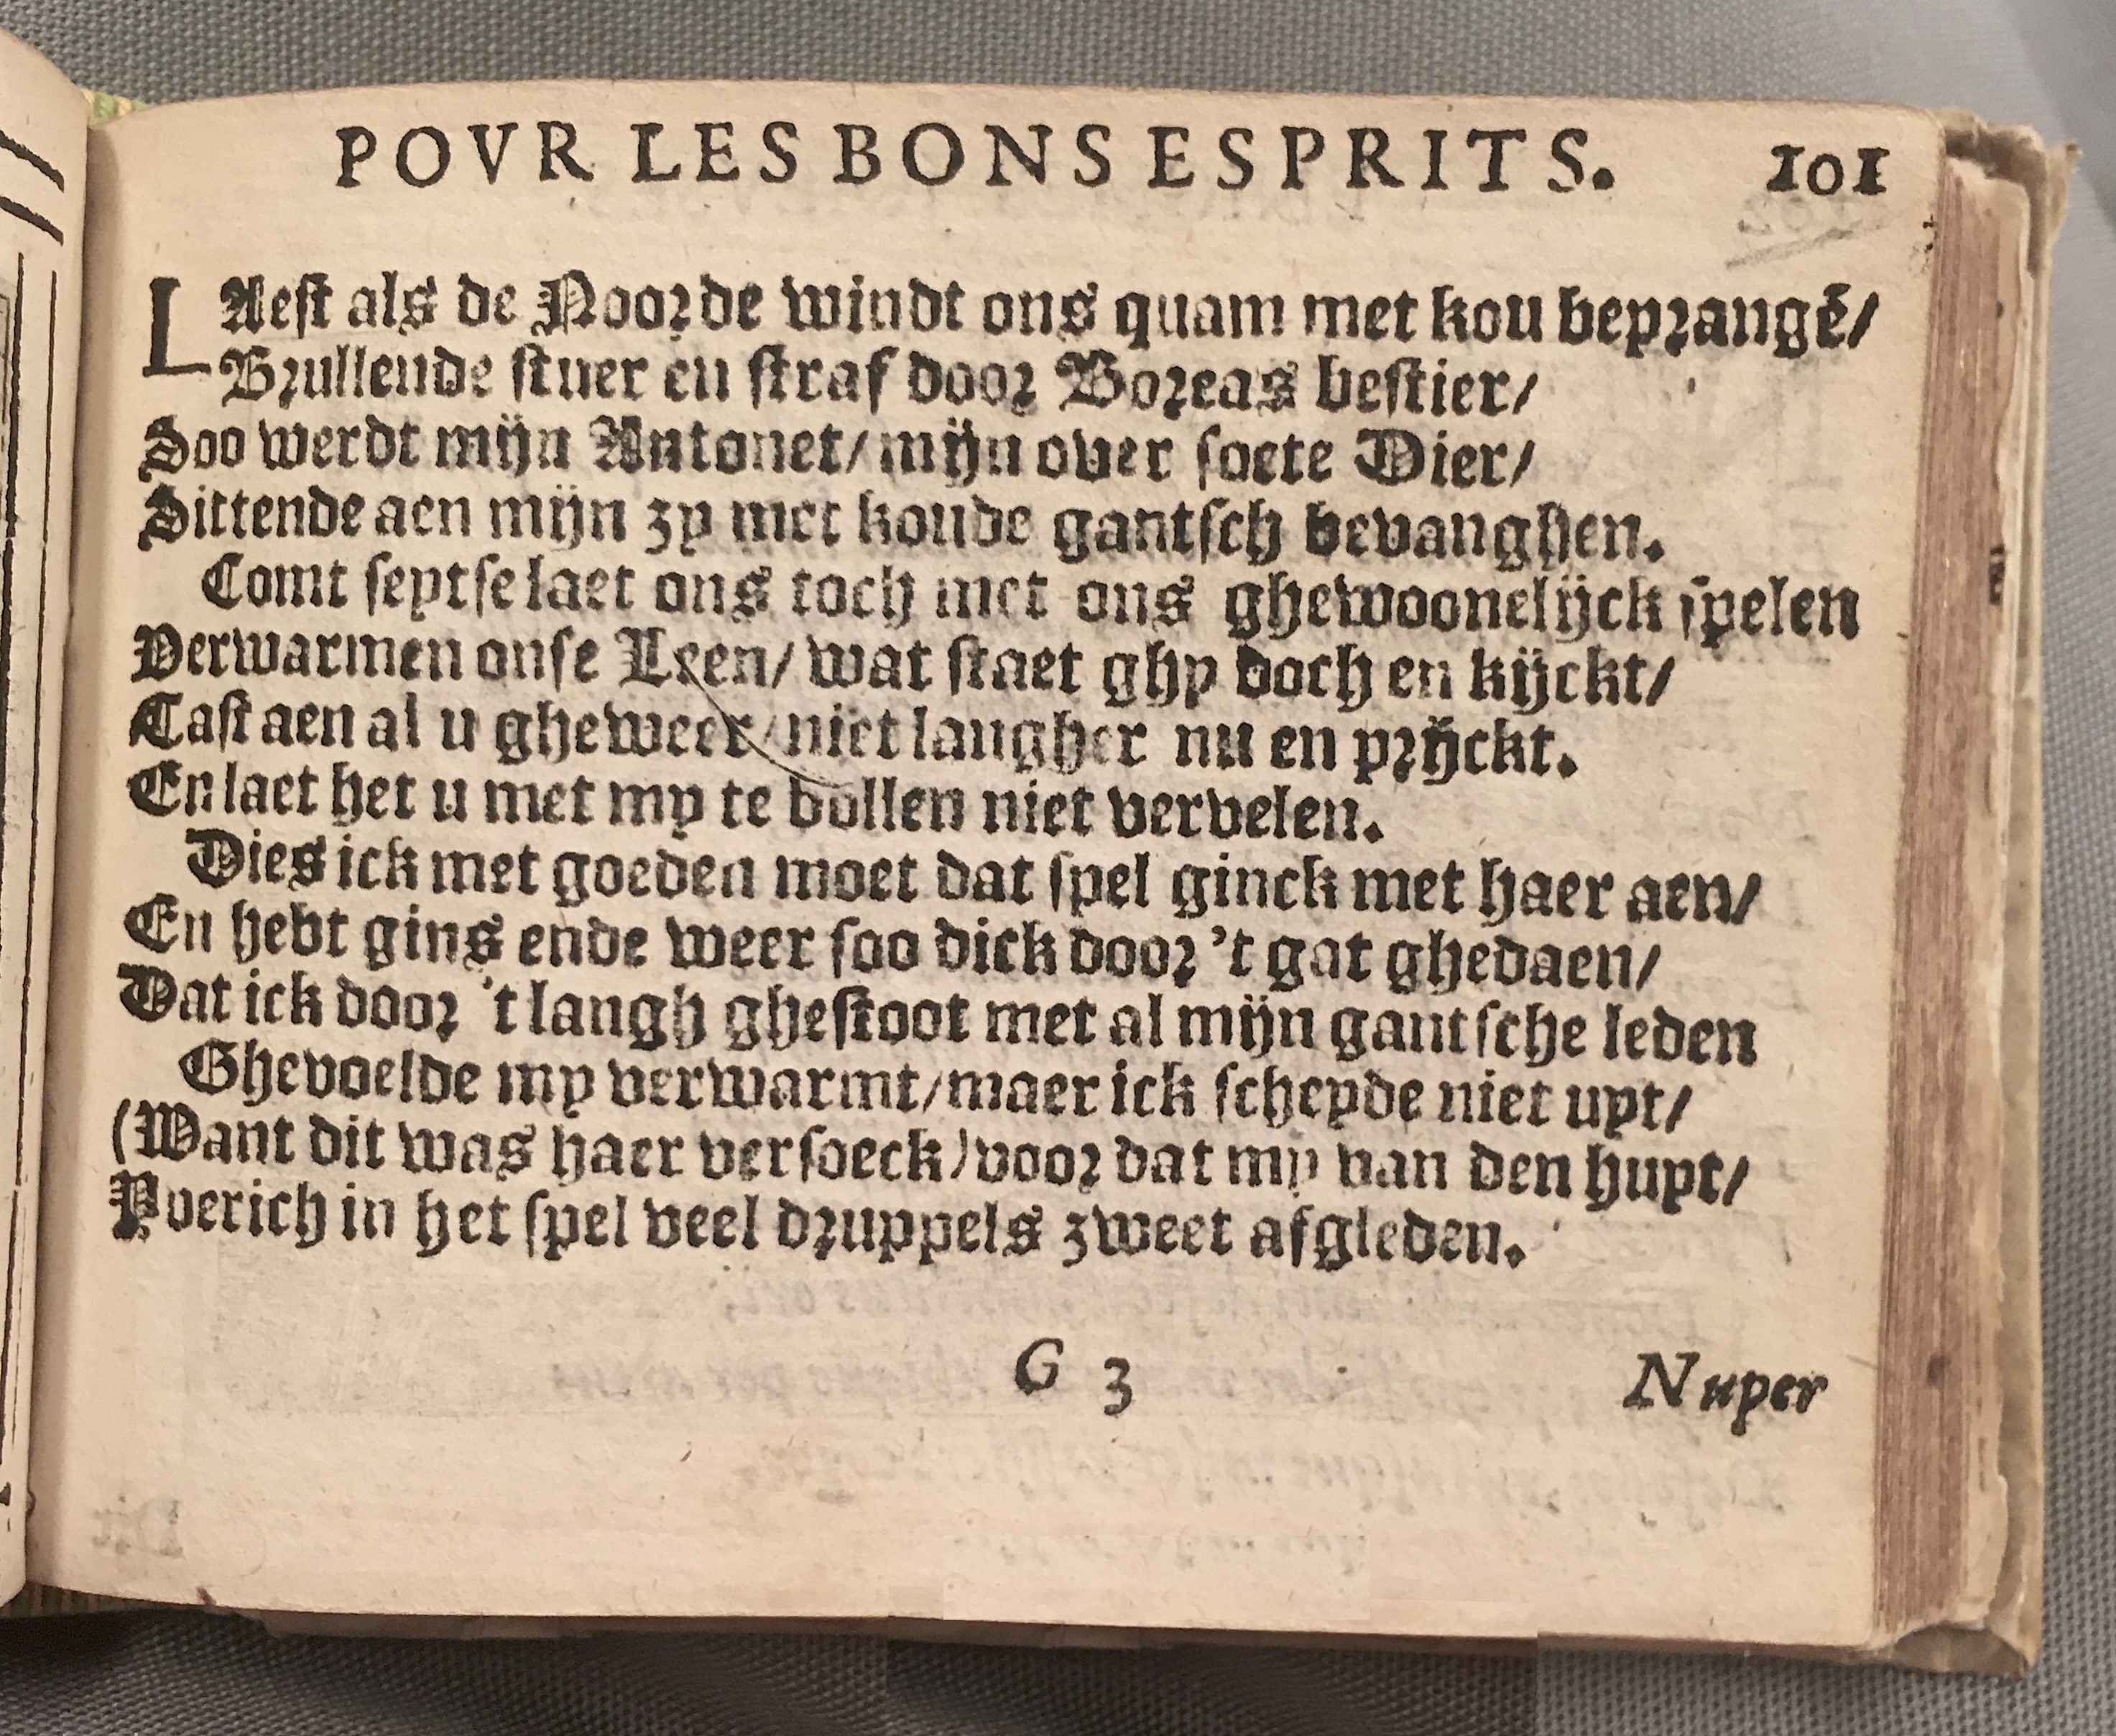 POVR LES BONS ESPRITS. 101
LAest als de Noorde windt ons quam met kou beprangē/
Brullende stuer en straf door Boreas bestier/
Soo werdt mijn Antonet/ mijn over soete Dier/
Sittende aen mijn zy met koude gantsch bevanghen.
Comt seytse laet ons toch met ons ghewoonelijck spelen
Verwarmen onse Leen/ wat staet ghy doch en kijckt/
Tast aen al u gheweer/ niet langher nu en prijckt.
En laet het u met my te vollen niet vervelen.
Dies ick met goeden moet dat spel ginck met haer aen/
En hebt gins ende weer soo dick door 't gat ghedaen/
Dat ick door 't langh ghestoot met al mijn gantsche leden
Ghevoelde my verwarmt/ maer ick scheyde niet uyt/
(Want dit was haer versoeck) voor dat my van den huyt/
Yverich in het spel veel druppels zweet afgleden.
G 3 Nuper